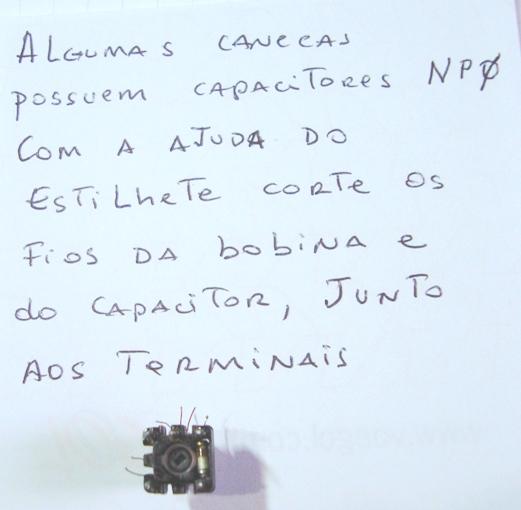 ALGUMAS CANECAS
POSSUEM CAPACITORES NPØ
COM A AJUDA DO
ESTILHETE CORTE OS
FIOS DA BOBINA E
DO CAPACITOR, JUNTO
AOS TERMINAIS